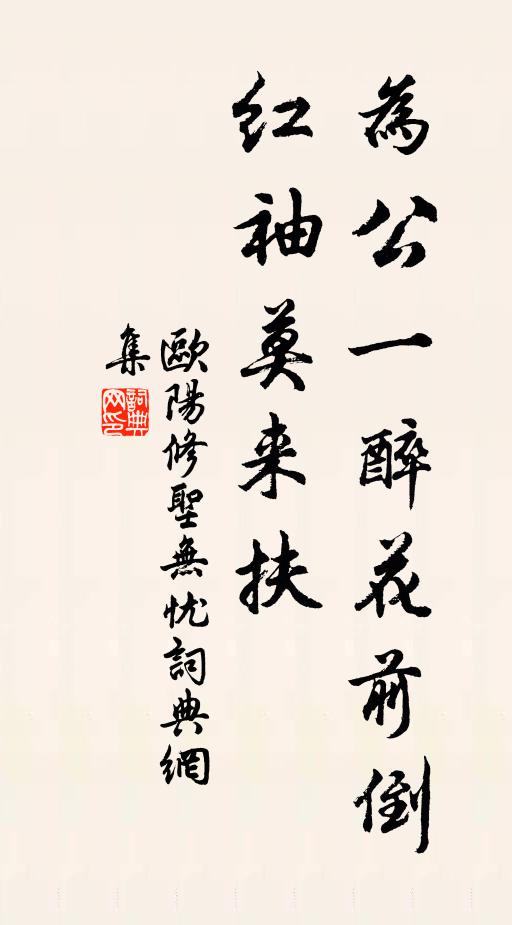 為公一醉花前倒
紅袖莫来扶
歐陽修聖無忧詞典網
集
詞典
网印